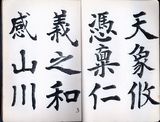 天象攸
憑稟仁
義之和
感山川